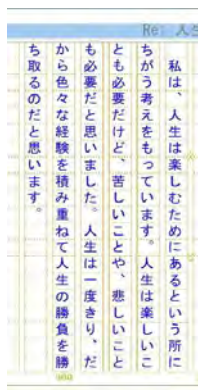 Re: 人生
私は、人生は楽しむためにあるという所に
ちがう考えをもっています。人生は楽しいこ
とも必要だけど、苦しいことや、悲しいこと
も必要だと思いました。人生は一度きり、だ
から色々な経験を積み重ねて人生の勝負を勝
ち取るのだと思います。